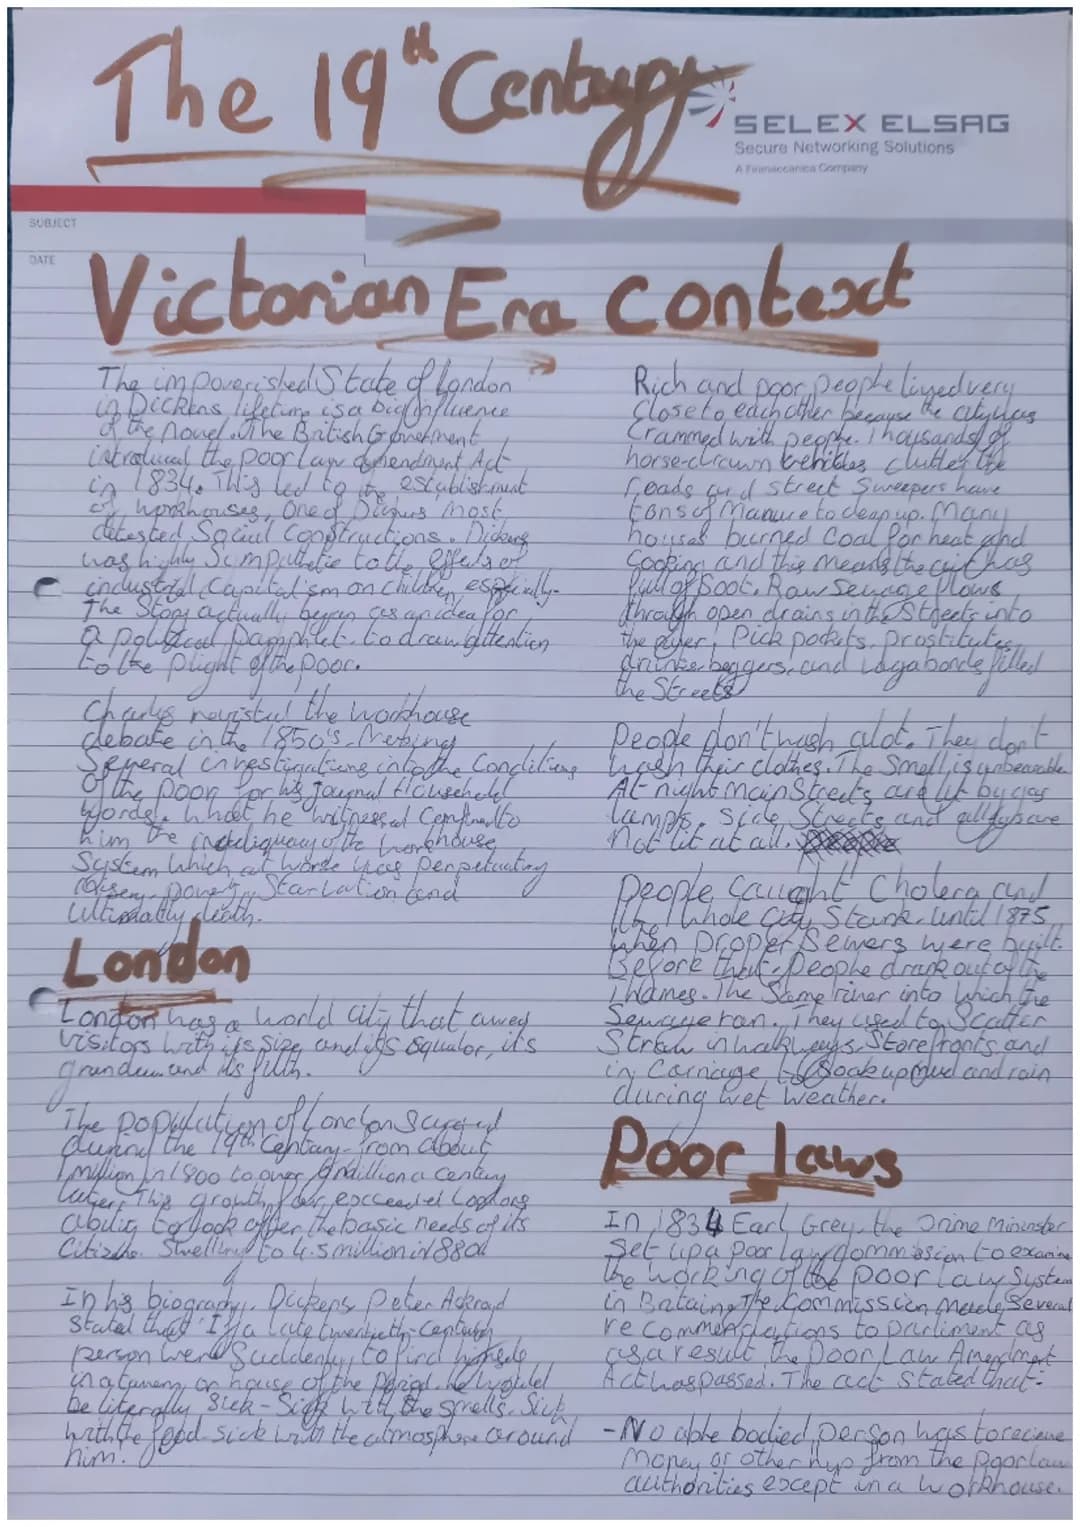 The 19th Century
SELEX ELSAG
Secure Networking Solutions
A Finmeccanica Company
SUBJECT
DATE
Victorian Era Context
The impoverished State of London
in Dickens lifetime is a big influence
of the novel. The British Government
introduced the poor law amendment Act
in 1834. This led to the establishment
of workhouses, one of Dickens most
detested Social Constructions. Dickens
was highly Sympathetic to the effects of
industrial Capitalism on children, especially.
The Story actually began as an idea for
a political pamphlet to draw attention
to the plight of the poor.
Charles revisited the workhouse
debate in the 1850's. Making
Several investigations into the Conditions
of the poor for his journal Household
Words. What he witnessed Confirmed to
him the inadequacy of the workhouse
System which at worse was perpetuating
misery, poverty, Starvation and
ultimately death.
London
London was a world city that awed
visitors with its size and its squalor, its
grandeur and its filth.
The population of London Surged
during the 19th Century from about
1 million in 1800 to over 6 million a century
later. This growth far exceeded Londons
ability to look after the basic needs of its
Citizens. Swelling to 4.5 million in 1880
In his biography, Dickens, Peter Ackroyd
stated that 'If a late twentieth-century
person were suddenly to find himself
in a tavern or house of the period he would
be literally sick - Sick with the smells. Sick
with the food sick with the atmosphere around
him.
Rich and poor people lived very
close to each other because the city was
Crammed with people. Thousands of
horse-drawn vehicles clutter the
roads and street Sweepers have
tons of Manure to clean up. Many
houses burned Coal for heat and
Cooking and this means the air was
full of Soot. Raw Sewage flows
through open drains in the Streets into
the river. Pick pockets, prostitutes,
drunks, beggers, and vagabonds filled
the Streets
People don't wash alot. They don't
wash their clothes. The Smell is unbearable
At night Main Streets are lit by gas
lamps. Side Streets and alleys are
Not lit at all.
People caught Cholera and
the whole city Stank. until 1875
when proper Sewers were built.
Before that, people drank out of the
Thames. The Same river into which the
Sewage ran. They used to Scatter
Straw in walkways, Storefronts, and
in Carriage to Soak up mud and rain
during wet weather.
Poor laws
In 1834 Earl Grey, the Prime Mininster
Set up a poor law commission to examine
the working of the poor Law System
in Britain. The Commission made Several
recommendations to parliment as
as a result, the Poor Law Amendment
Act was passed. The act stated that:
-No able bodied person was to recieve
Money or other help from the poor law
authorities except in a workhouse.